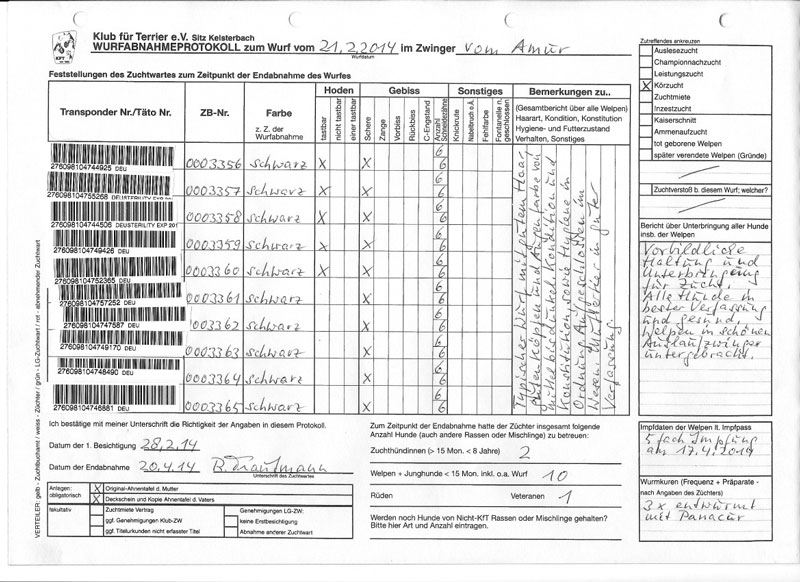 Klub für Terrier e.V. Sitz Kelsterbach
WURFABNAHMEPROTOKOLL zum Wurf vom 21.2.2014 im Zwinger vom Amur
Wurfdatum
KFT
Feststellungen des Zuchtwartes zum Zeitpunkt der Endabnahme des Wurfes
Transponder Nr./Täto Nr.
ZB-Nr.
Farbe
z. Z. der Wurfabnahme
Hoden
tastbar
nicht tastbar
einer tastbar
Gebiss
Schere
Zange
Vorbiss
Rückbiss
C-Engstand
Anzahl Schneidezähne
Sonstiges
Knickrute
Nabelbruch o.Ä.
Fehlfarbe
Fontanelle n. geschlossen
Bemerkungen zu..
(Gesamtbericht über alle Welpen)
Haarart, Kondition, Konstitution
Hygiene- und Futterzustand
Verhalten, Sonstiges
276098104744925 DEU 0003356 schwarz X X 6 6
276098104755268 DEU STERILITY EXP 201 0003357 schwarz X X 6 6
276098104744506 DEU STERILITY EXP 201 0003358 schwarz X X 6 6
276098104749426 DEU 0003359 schwarz X X 6 6
276098104752365 DEU 0003360 schwarz X X 6 6
276098104757252 DEU 0003361 schwarz X 6 6
276098104747587 DEU 0003362 schwarz X 6 6
276098104749170 DEU 0003363 schwarz X 6 6
276098104748490 DEU 0003364 schwarz X 6 6
276098104746881 DEU 0003365 schwarz X 6 6
Typischer Wurf mit gutem Haar
guten Köpfen und Augenfarbe von
mittel bis dunkel. Kondition und
Konstitution, sowie Hygiene in
Ordnung. Aufgeschlossen im
Wesen. Mutter in guter
Verfassung.
Zutreffendes ankreuzen
Auslesezucht
Championnachzucht
Leistungszucht
X Körzucht
Zuchtmiete
Inzestzucht
Kaiserschnitt
Ammenaufzucht
tot geborene Welpen
später verendete Welpen (Gründe)
Zuchtverstoß b. diesem Wurf; welcher?
Bericht über Unterbringung aller Hunde
insb. der Welpen
Vorbildliche
Haltung und
Unterbringung
für Zucht.
Alle Hunde in
bester Verfassung
und gesund.
Welpen in schönen
Auslaufzwinger
untergebracht.
Impfdaten der Welpen lt. Impfpass
5 fach Impfung
am 17.4.2014
Wurmkuren (Frequenz + Präparate -
nach Angaben des Züchters)
3x entwurmt
mit Panacur
Ich bestätige mit meiner Unterschrift die Richtigkeit der Angaben in diesem Protokoll.
Datum der 1. Besichtigung 28.2.14
Datum der Endabnahme 20.4.14 B. Trautmann
Unterschrift des Zuchtwartes
Anlagen:
obligatorisch
X Original-Ahnentafel d. Mutter
X Deckschein und Kopie Ahnentafel d. Vaters
fakultativ
Zuchtmiete Vertrag
ggf. Genehmigungen Klub-ZW
ggf. Titelurkunden nicht erfasster Titel
Genehmigungen LG-ZW:
keine Erstbesichtigung
Abnahme anderer Zuchtwart
Zum Zeitpunkt der Endabnahme hatte der Züchter insgesamt folgende
Anzahl Hunde (auch andere Rassen oder Mischlinge) zu betreuen:
Zuchthündinnen (> 15 Mon. < 8 Jahre) 2
Welpen + Junghunde < 15 Mon. inkl. o.a. Wurf 10
Rüden Veteranen 1
Werden noch Hunde von Nicht-KfT Rassen oder Mischlinge gehalten?
Bitte hier Art und Anzahl eintragen.
VERTEILER: gelb - Zuchtbuchamt / weiss - Züchter / grün - LG-Zuchtwart / rot - abnehmender Zuchtwart